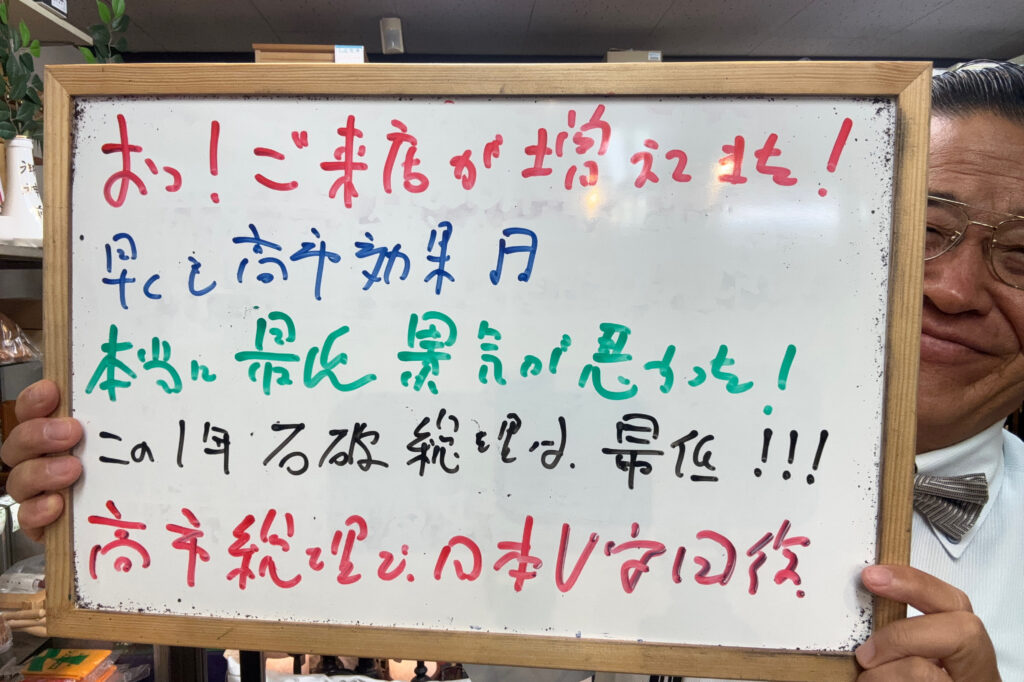 おっ！ご来店が増えてきた！
早くも高市効果円
本当に最低景気が悪かった！
この1年石破総理は、最低!!!
高市総理で、日本V字回復